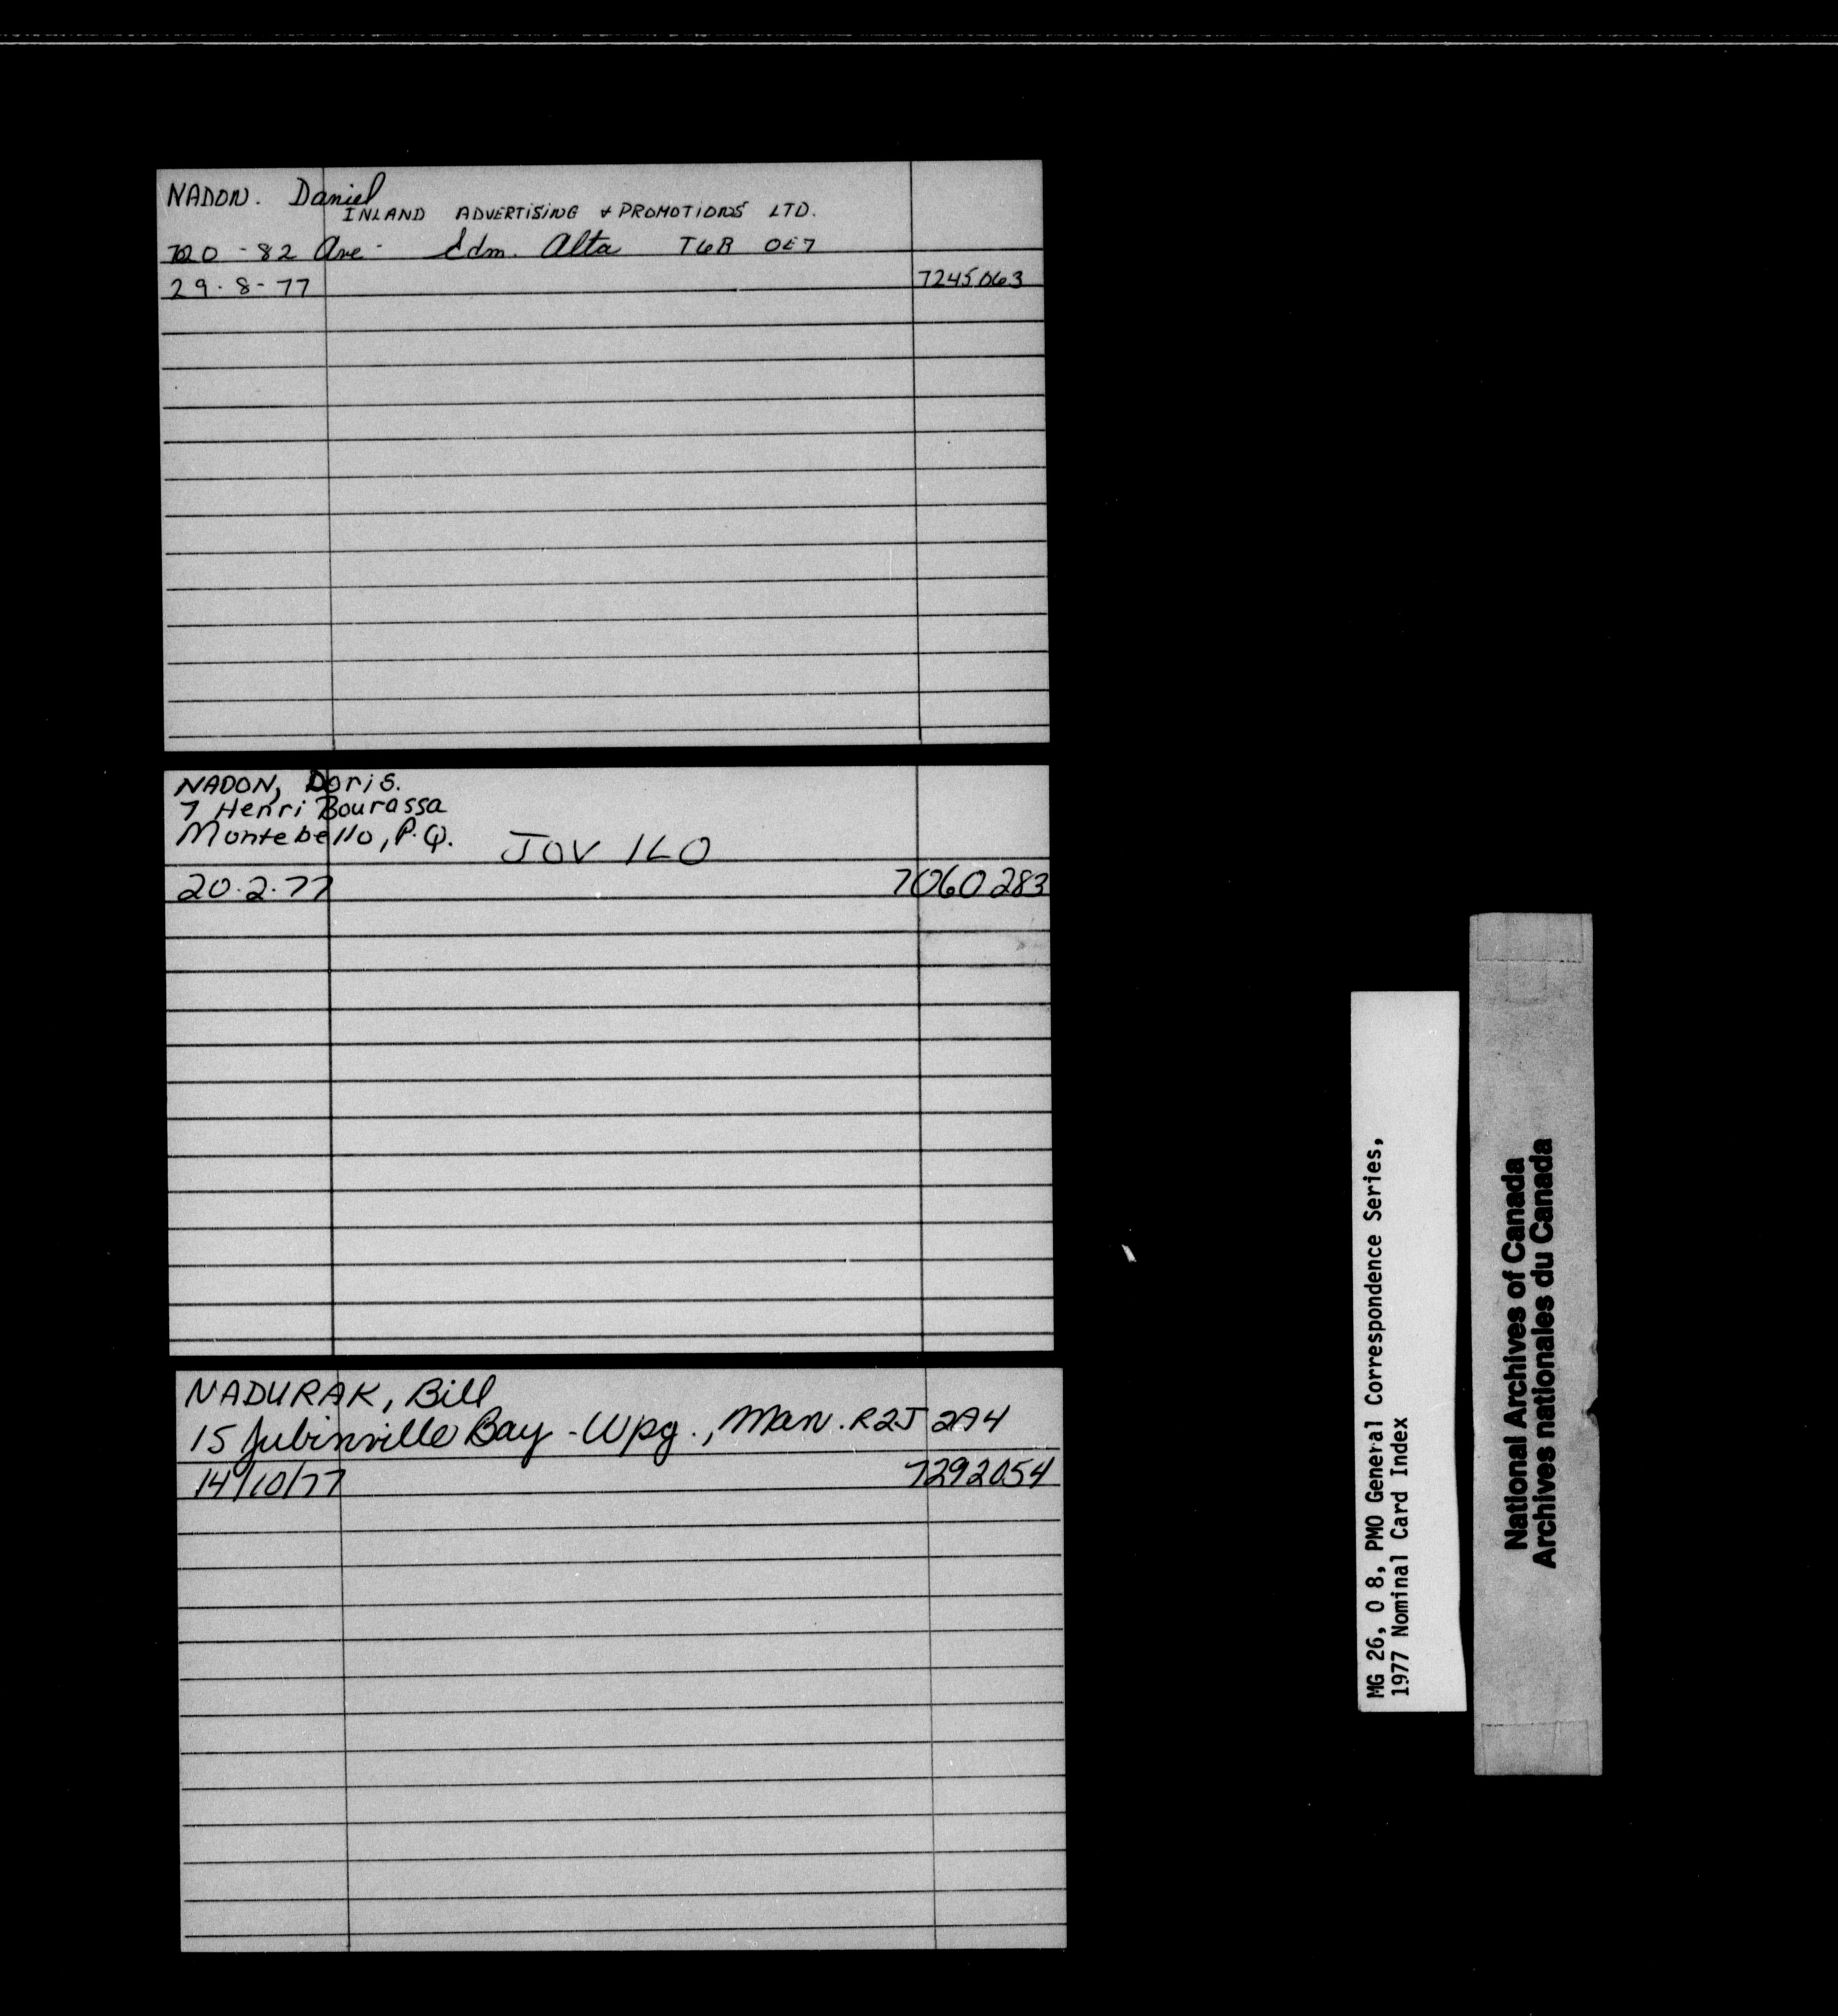 NADON. Daniel
INLAND ADVERTISING & PROMOTIONS LTD.
720 - 82 Ave - Edm. Alta T6B 0E7
29-8-77 7245063
NADON, Doris.
7 Henri Bourassa
Montebello, P.Q. J0V 1L0
20.2.77 7060283
NADURAK, Bill
15 Jubinville Bay - Wpg., Man. R2J 2A4
14/10/77 7292054
MG 26, O 8, PMO General Correspondence Series,
1977 Nominal Card Index
National Archives of Canada
Archives nationales du Canada